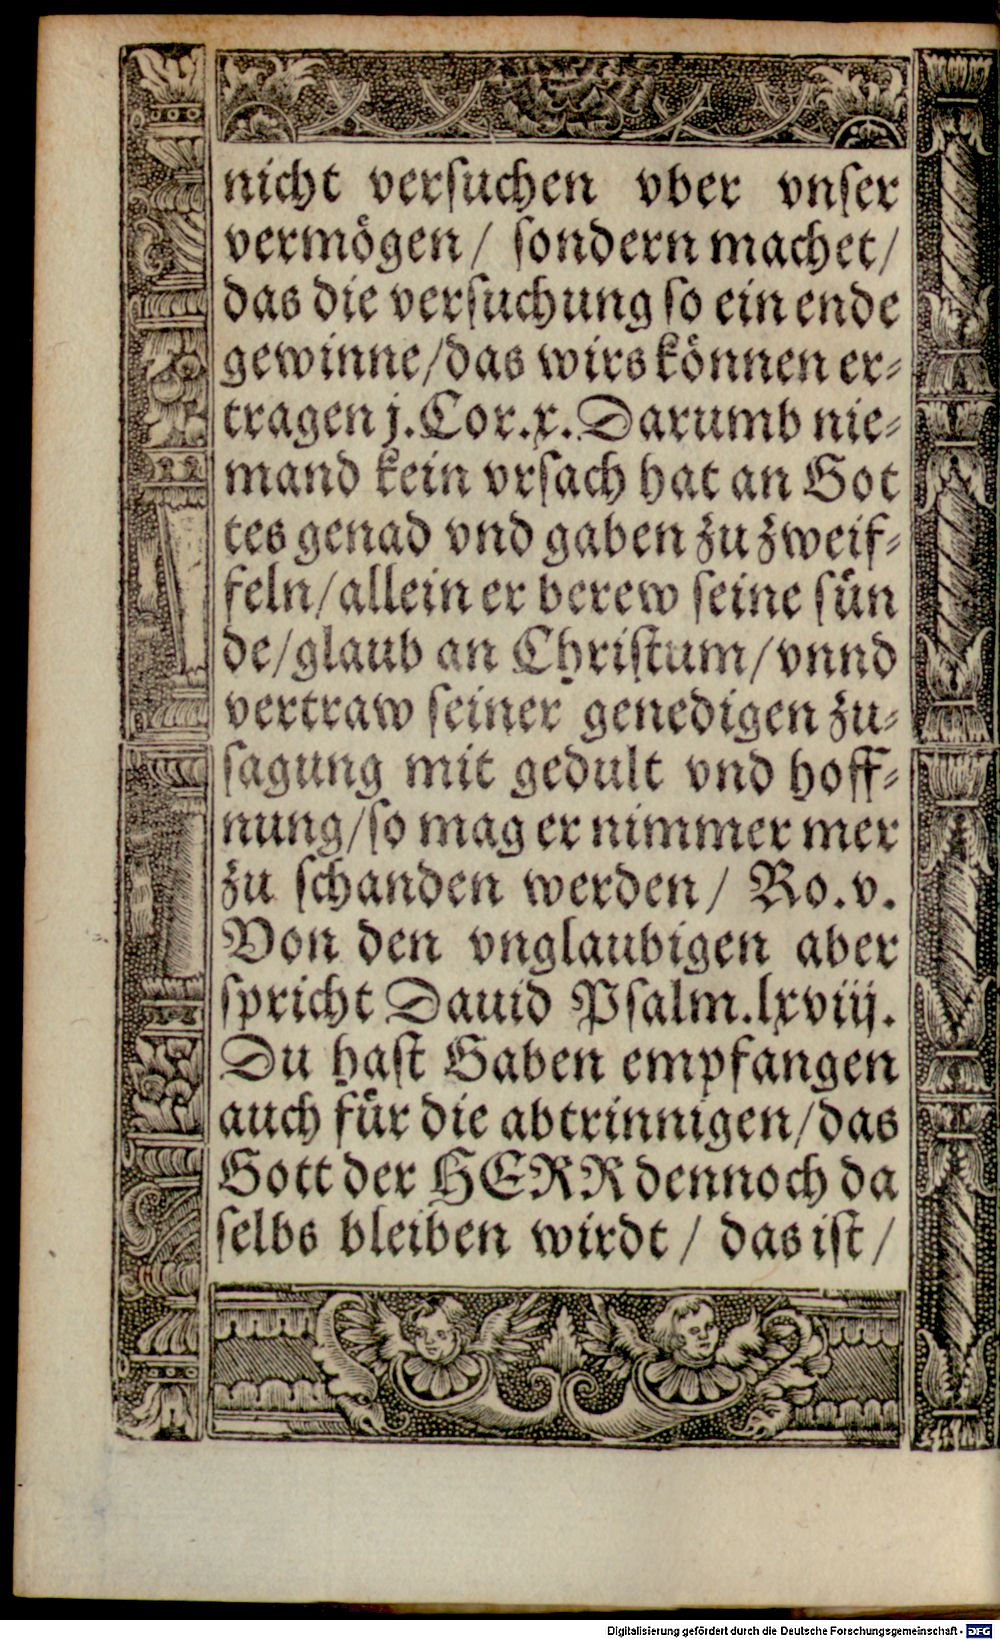 nicht versuchen vber vnser
vermögen/ sondern machet/
das die versuchung so ein ende
gewinne/das wirs können er-
tragen j.Cor.x. Darumb nie-
mand kein vrsach hat an Got
tes genad vnd gaben zu zweif-
feln/allein er berew seine sün
de/glaub an Christum/vnnd
vertraw seiner genedigen zu-
sagung mit gedult vnd hoff-
nung/so mag er nimmer mer
zu schanden werden/ Ro.v.
Von den vnglaubigen aber
spricht Dauid Psalm.lxviij.
Du hast Gaben empfangen
auch für die abtrinnigen/das
Gott der HERR dennoch da
selbs bleiben wirdt/ das ist/
Digitalisierung gefördert durch die Deutsche Forschungsgemeinschaft - DFG